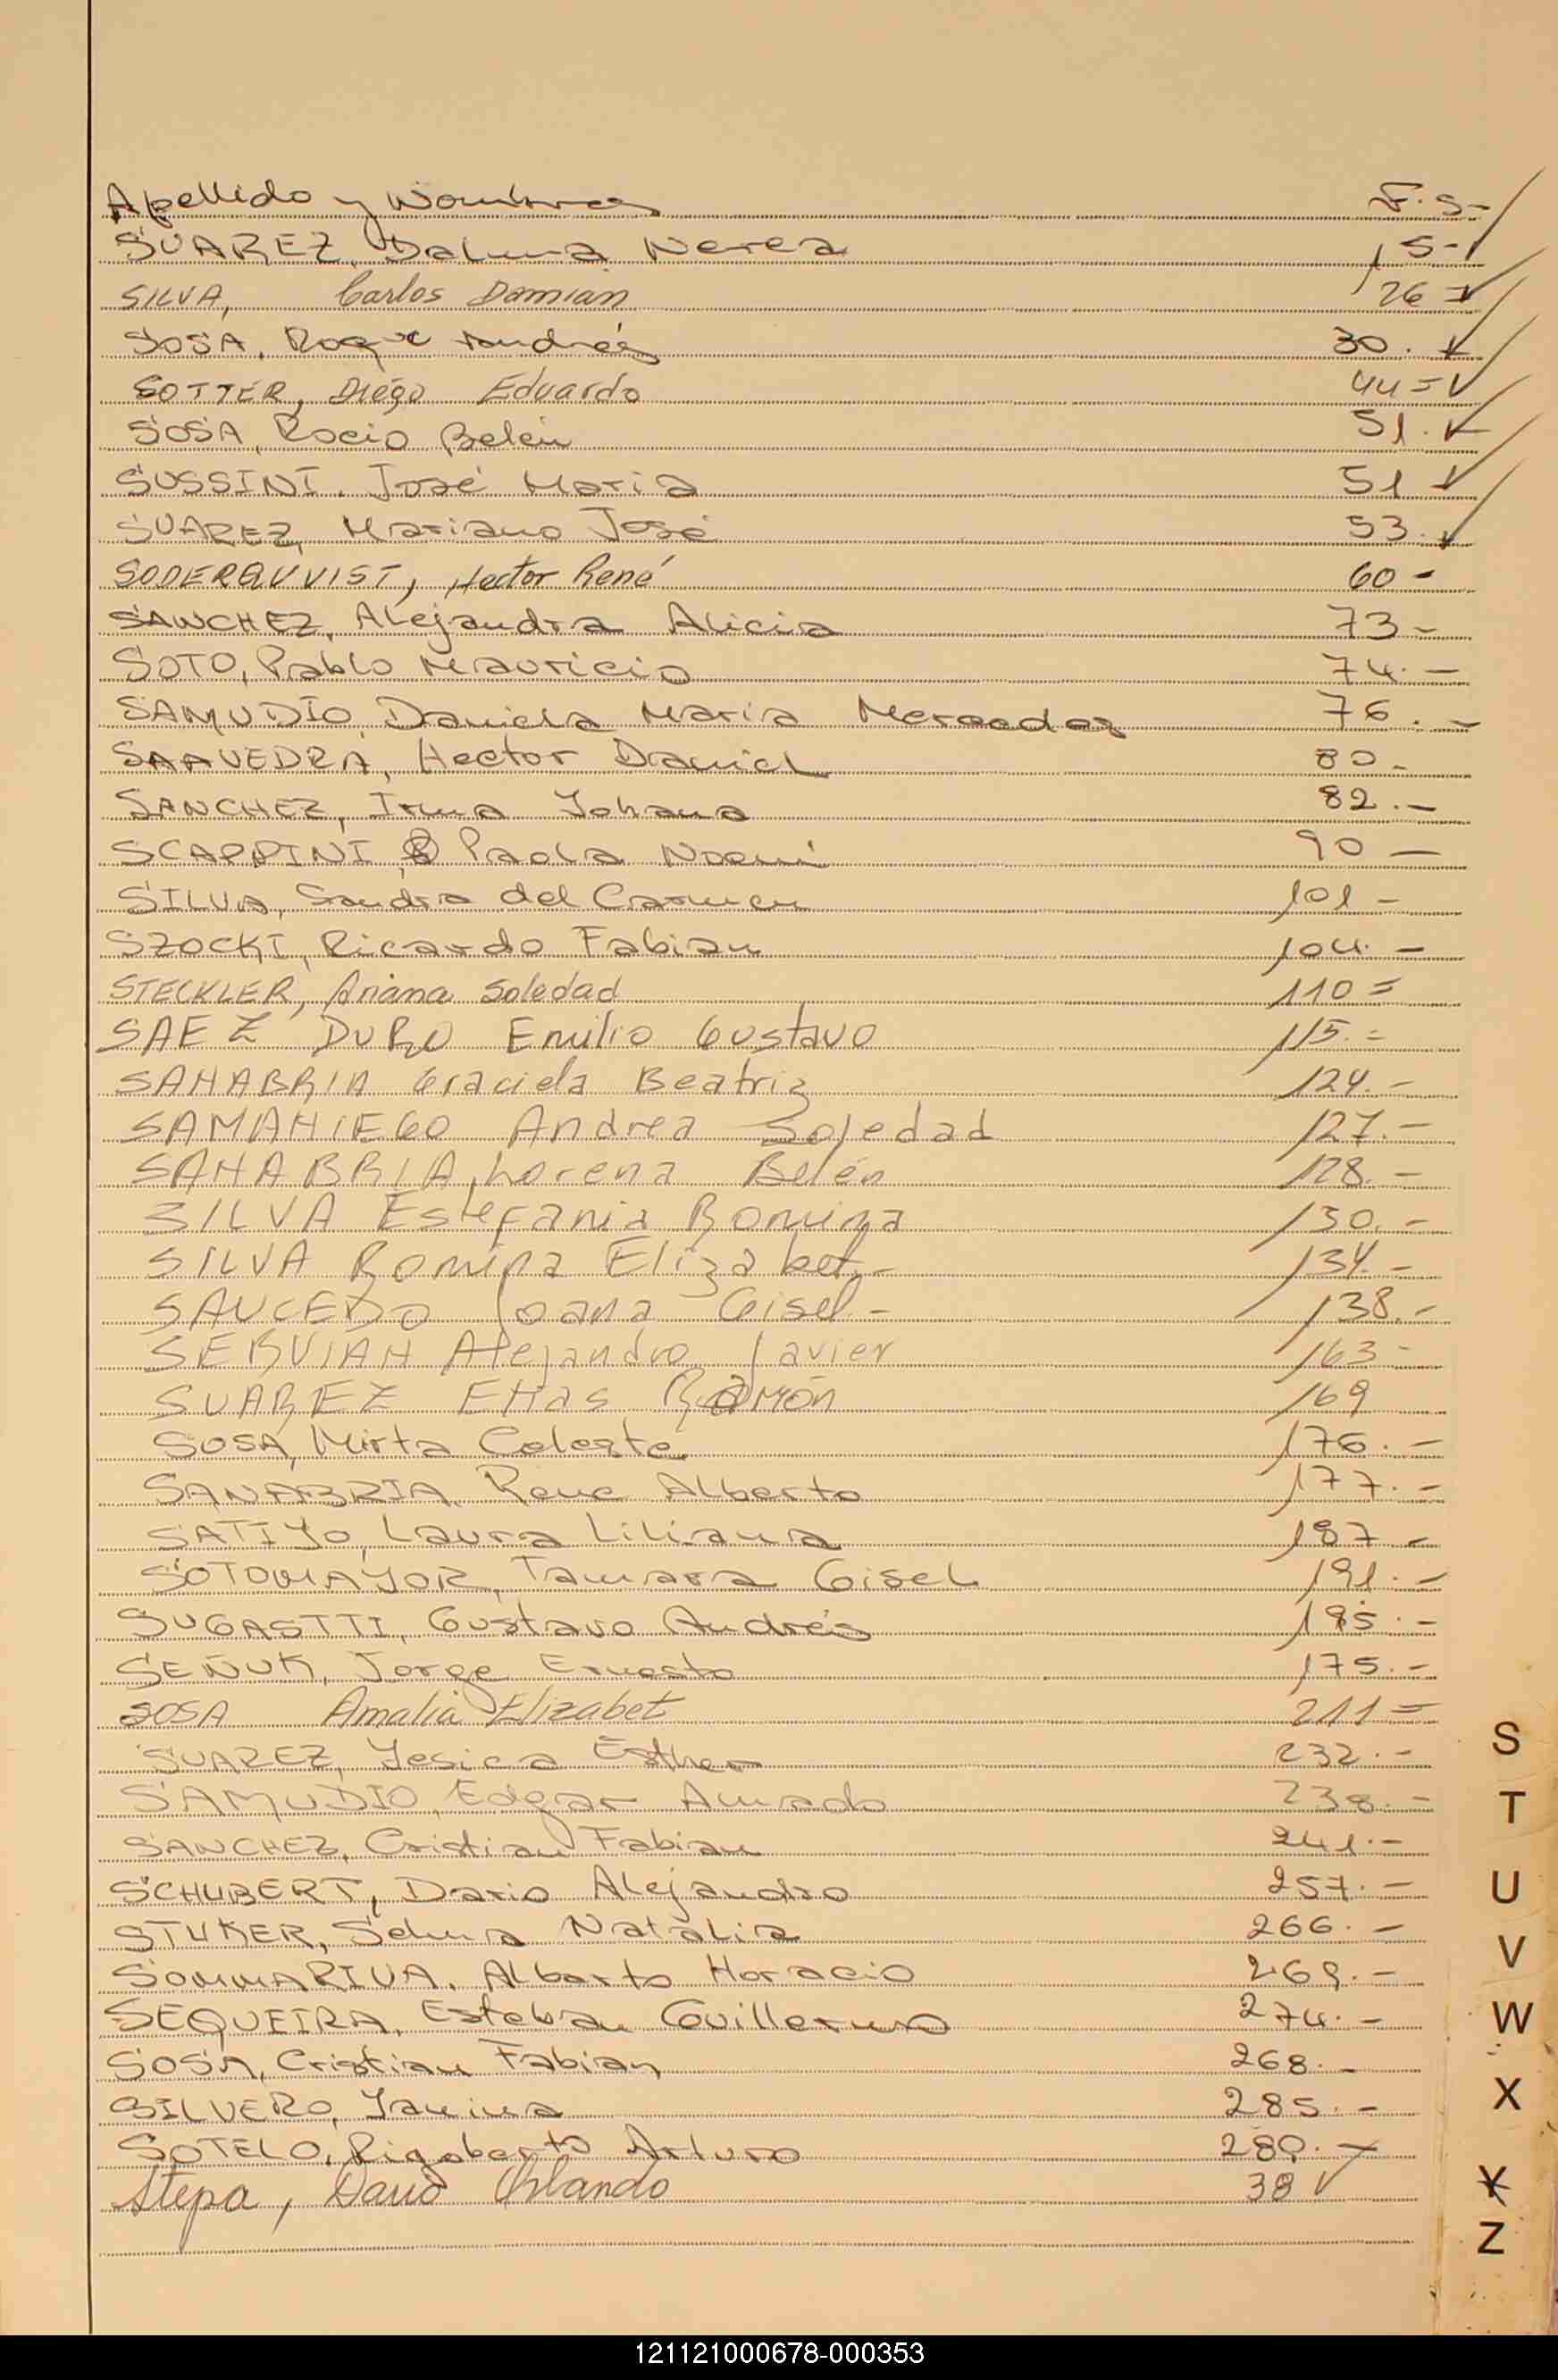 Apellido y Nombres F.s-
SUAREZ, Dalma Nerea 15-
SILVA, Carlos Damian 26=
SOSA, Roque Andrés 30.
SOTTER, Diego Eduardo 44=
SOSA, Rocio Belén 51.
SUSSINI, José Maria 51
SUAREZ, Mariano José 53.
SODERQUVIST, Hector René 60-
SANCHEZ, Alejandra Alicia 73-
SOTO, Pablo Mauricio 74.-
SAMUDIO, Daniela María Mercedes 76.-
SAAVEDRA, Hector Daniel 80-
SANCHEZ, Irma Johana 82.-
SCAPPINI, Paola Noemi 90-
SILVA, Sandra del Carmen 101-
SZOCKI, Ricardo Fabian 104.-
STECKLER, Ariana Soledad 110=
SAEZ DURO Emilio Gustavo 115.=
SANABRIA Graciela Beatriz 124.-
SAMANIEGO Andrea Soledad 127.-
SANABRIA, Lorena Belén 128.-
SILVA Estefania Romina 130.-
SILVA Romina Elizabet.- 134.-
SAUCEDO Joana Gisel.- 138.-
SERVIAN Alejandro Javier 163-
SUAREZ Elias Ramón 169
SOSA, Mirta Celeste 176.-
SANABRIA, Rene Alberto 177.-
SATIYO, Laura Liliana 187-
SOTOMAYOR, Tamara Gisel 191.-
SUGASTTI, Gustavo Andrés 195.-
SEÑUK, Jorge Ernesto 175.-
SOSA Amalia Elizabet 211=
SUAREZ, Yesica Esther 232.-
SAMUDIO, Edgar Amado 238.-
SANCHEZ, Cristian Fabian 241.-
SCHUBERT, Dario Alejandro 257.-
STUKER, Selma Natalia 266.-
SOMMARIVA, Alberto Horacio 269.-
SEQUEIRA, Esteban Guillermo 274.-
SOSA, Cristian Fabian 268.-
SILVERO, Yanina 285.-
SOTELO, Rigoberto Arturo 289.-
Stepa, Dario Orlando 38
S
T
U
V
W
X
Y
Z
121121000678-000353